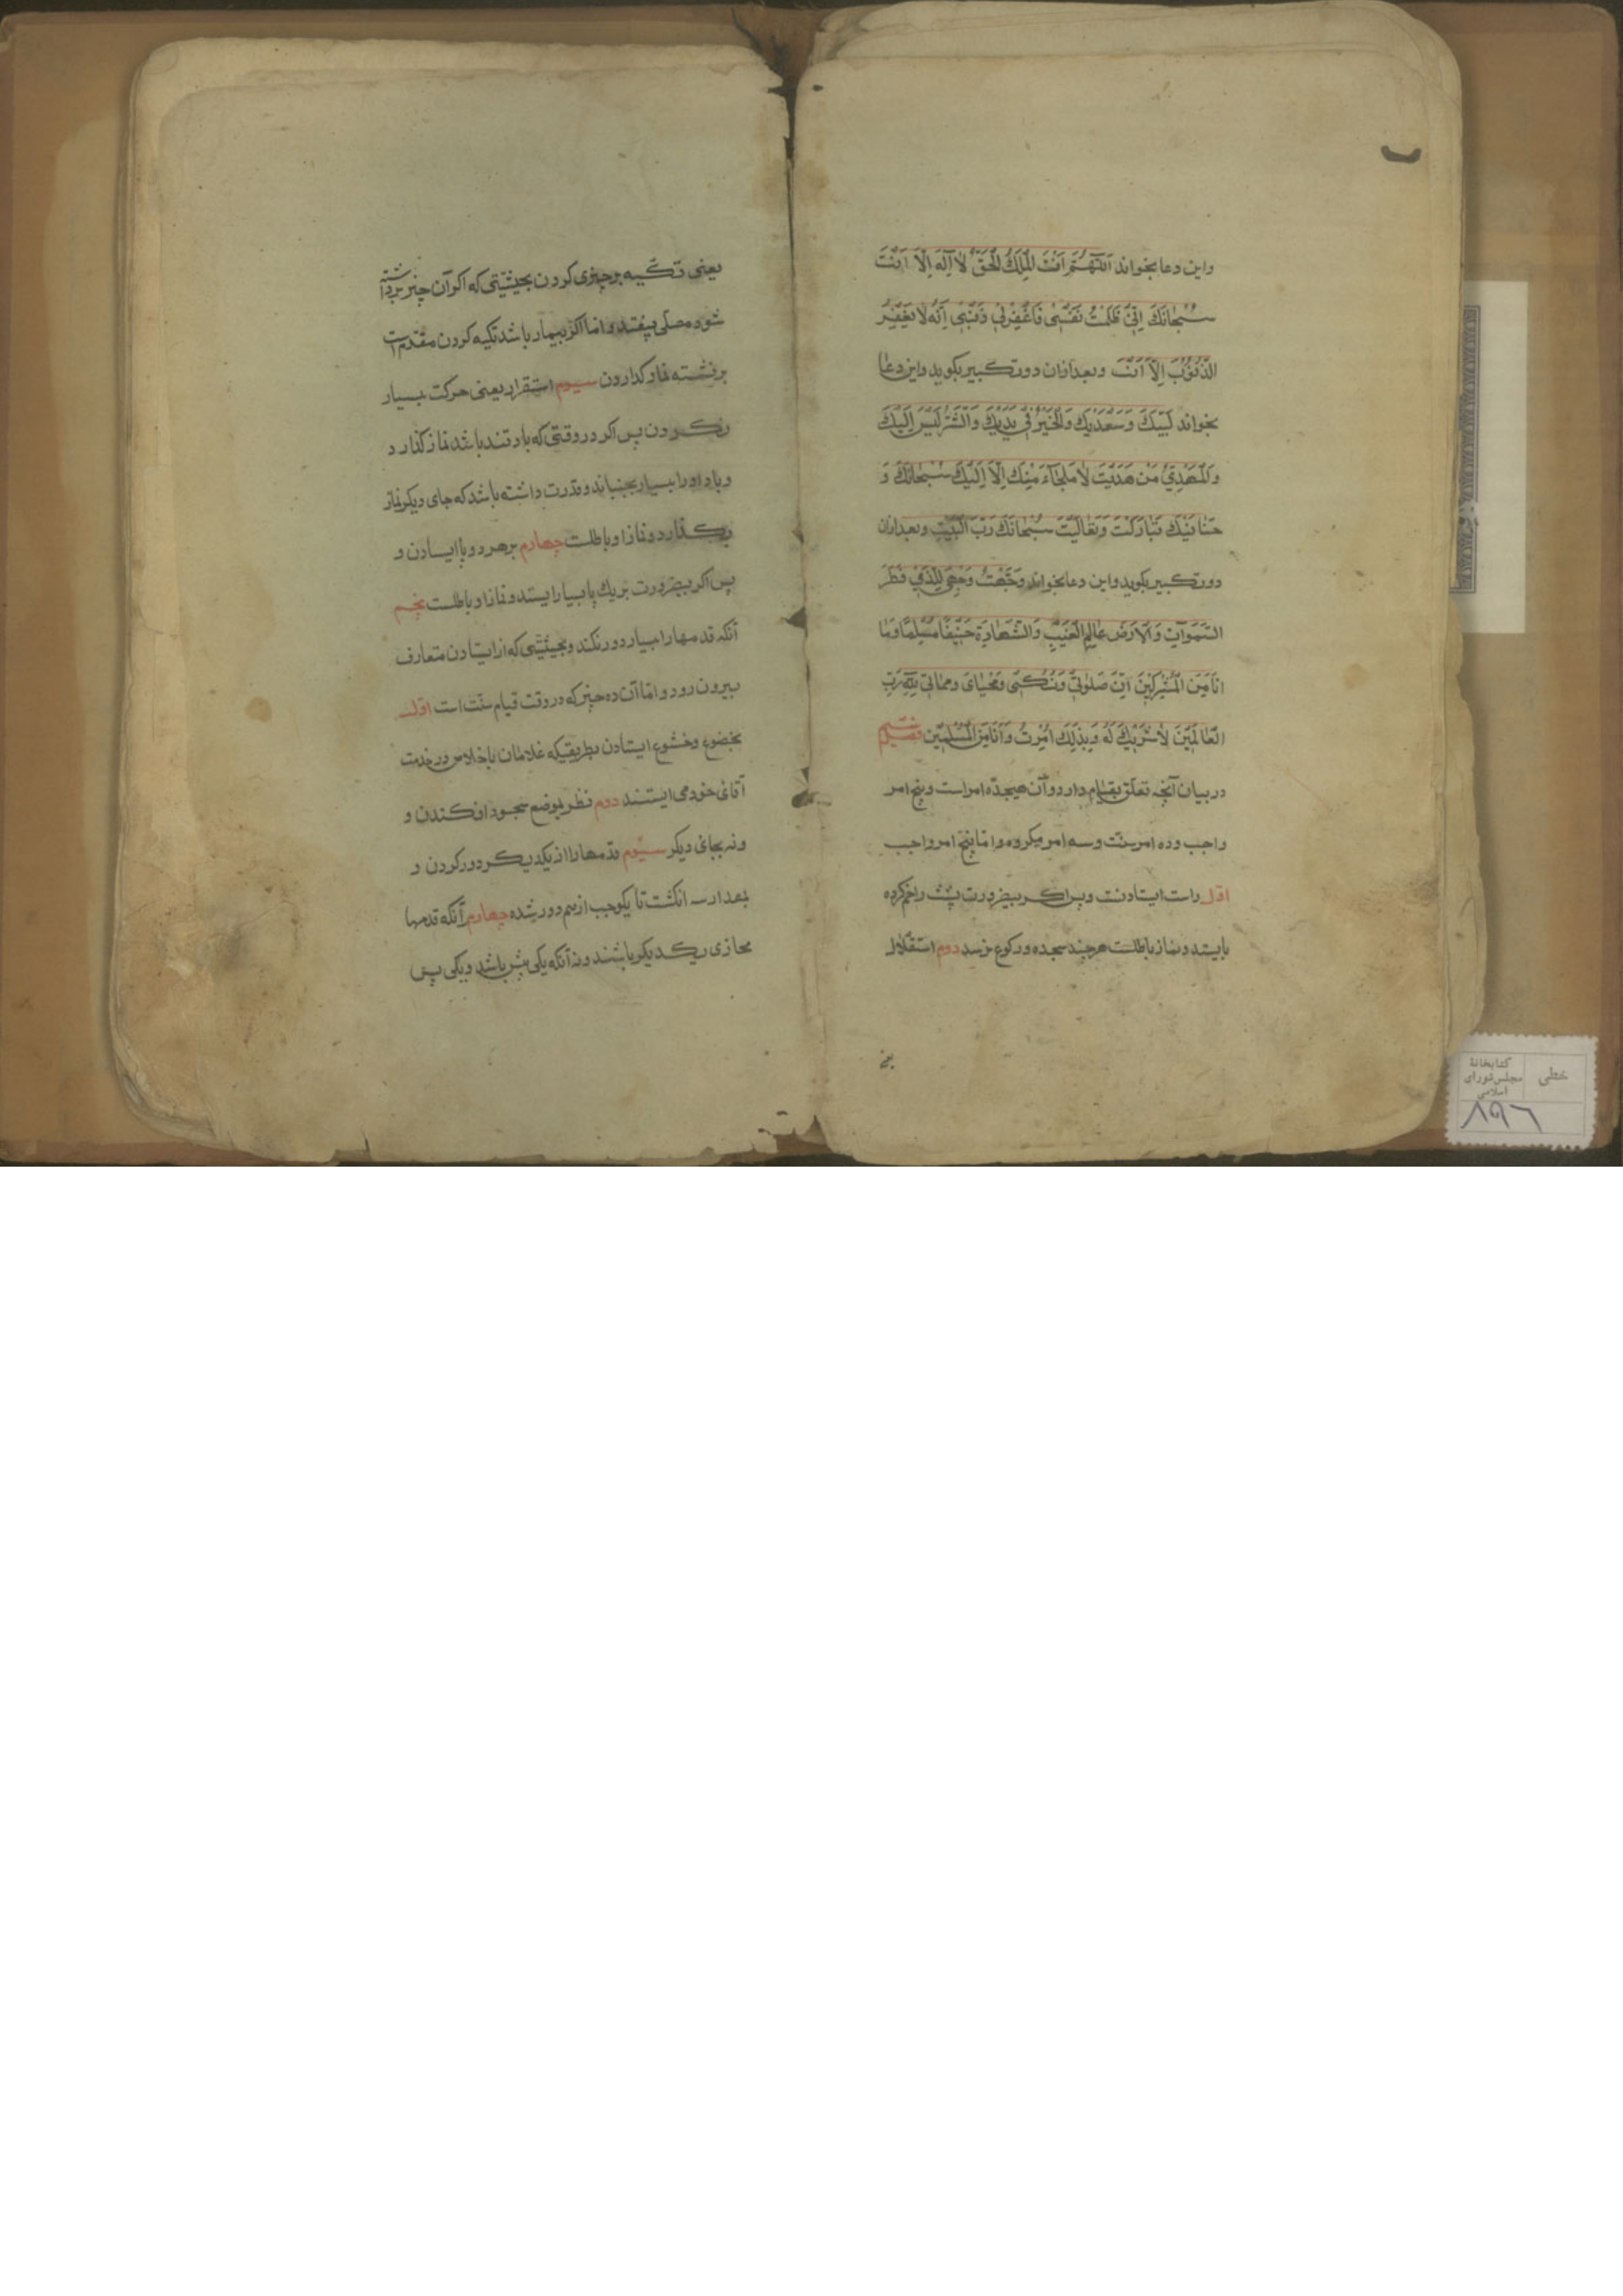 واین دعا بخواند اَللّٰهُمَّ اَنْتَ الْمَلِکُ الْحَقُّ لٰا اِلٰهَ اِلّٰا اَنْتَ
سُبْحٰانَکَ اِنّی ظَلَمْتُ نَفْسْی فَاغْفِرْلی ذَنْبْی اِنَّهُ لٰا یَغْفِرُ
الذُّنُوْبَ اِلّٰا اَنْتَ وبعدازان دو تکبیر بکوید واین دعا
بخواند لَبَّیْکَ وَسَعْدَیْکَ وَالْخَیْرُ فی یَدَیْکَ وَالشَّرُّ لَیْسَ اِلَیْکَ
وَالْمَهْدِیُّ مَنْ هَدَیْتَ لٰا مَلْجَاءَ مِنْکَ اِلّٰا اِلَیْکَ سُبْحٰانَکَ وَ
حَنٰانَیْکَ تَبٰارَکْتَ وَتَعٰالَیْتَ سُبْحٰانَکَ رَبَّ الْبَیْتِ وبعدازان
دو تکبیر بکوید واین دعا بخواند وَجَّهْتُ وَجْهِیَ لِلَّذی فَطَرَ
السَّمَوٰاتِ وَالْاَرْضَ عٰالِمِ الْغَیْبِ وَالشَّهٰادَةِ حَنیفًا مُسْلِمًا وَمٰا
اَنَا مِنَ الْمُشْرِکینَ اِنَّ صَلٰوتی وَنُسُکی وَمَحْیٰایَ وَمَمٰاتی لِلّٰهِ رَبِّ
الْعٰالَمینَ لٰا شَرْیکَ لَهُ وَبِذٰلِکَ اُمِرْتُ وَاَنَا مِنَ الْمُسْلِمینَ فصل ششم
در بیان آنچه تعلق بقیام دارد وآن هیجده امر است وپنج امر
واجب وده امر سنت وسه امر مکروه واما پنج امر واجب
اول راست ایستادنست وپس اکر بیضرورت پشت راخم کرده
بایستد ونماز باطلست هرچند سجده ورکوع نرسد دوم استقلال
یعنی
یعنی تکیه برچیزی کردن بحیثیتی که اکر آن چیز برداشته
شود مصلی بیفتد واما اکر بیمار باشد تکیه کردن مقدم است
برنشسته نماز کذاردن سیوم استقرار یعنی حرکت بسیار
نکردن پس اکر در وقتی که باد تند باشد نماز کذارد
وباد اورا بسیار بجنباند وقدرت داشته باشد که جای دیکر نماز
بکذارد ونماز او باطلست چهارم بر هر دو پا ایستادن و
پس اکر بیضرورت بر یک پا بسیار ایستد ونماز او باطلست پنجم
آنکه قدمها را بسیار دور نکند وبحیثیتی که از ایستادن متعارف
بیرون رود واما آن ده چیز که در وقت قیام سنت است اول
بخضوع وخشوع ایستادن بطریقیکه غلامان باخلاص در خدمت
آقای خود می ایستند دوم نظر بموضع سجود افکندن و
ونه بجای دیکر سیوم قدمها را از یکدیکر دور کردن و
بمقدار سه انکشت تا یکوجب از هم دور شده چهارم آنکه قدمها
محاذی یکدیکر باشند ونه آنکه یکی پیش باشد ویکی پس
خطی
کتابخانهٔ
مجلس شورای
اسلامی
۸۹۶